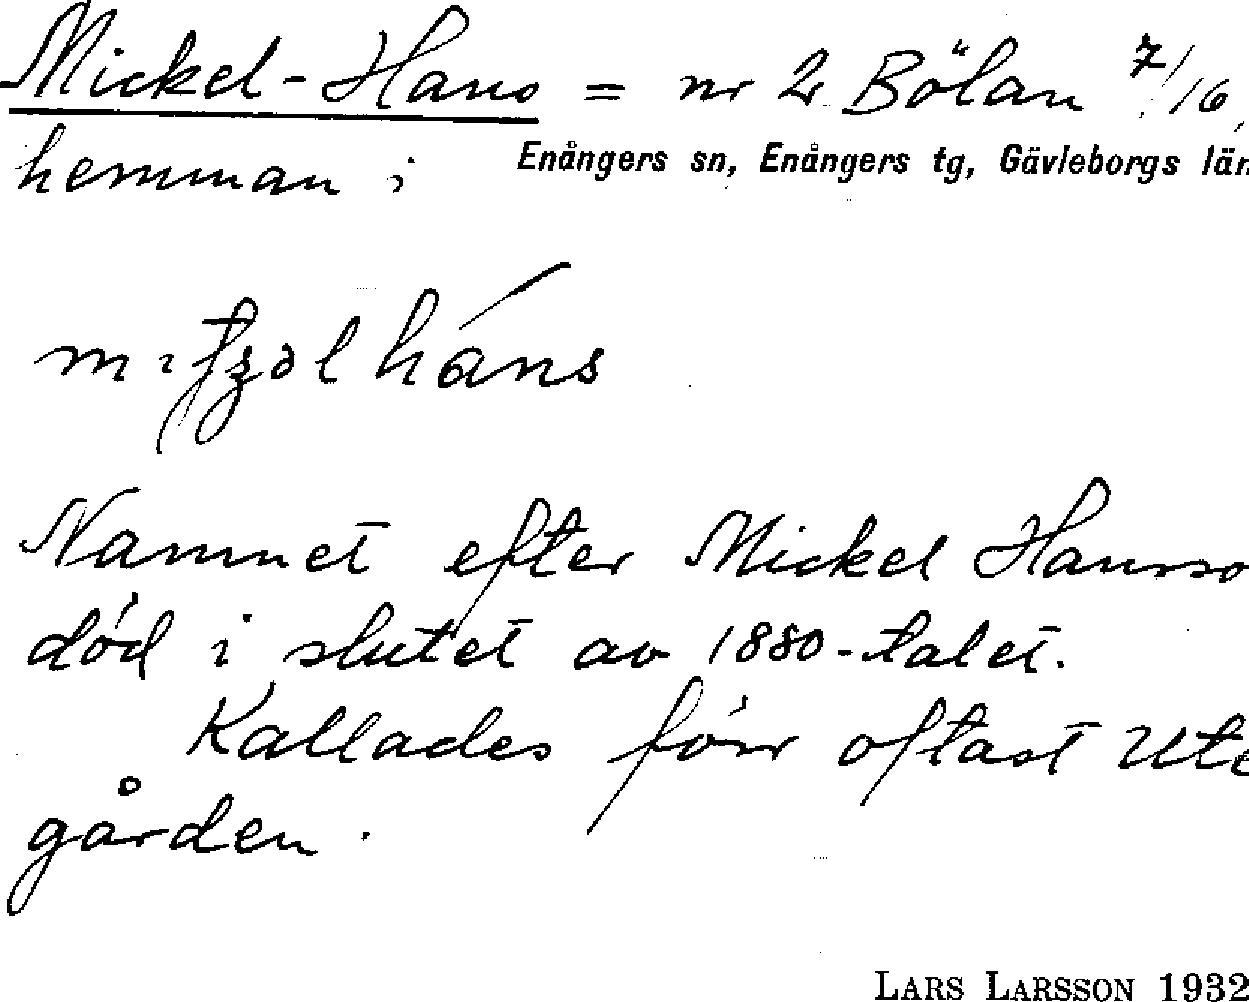 Mickel-Hans = nr 2 Bölan 7/16,
hemman i Enångers sn, Enångers tg, Gävleborgs län
háns
Namnet efter Mickel Hansso
död i slutet av 1880-talet.
Kallades förr oftast Ute
gården.
LARS LARSSON 1932